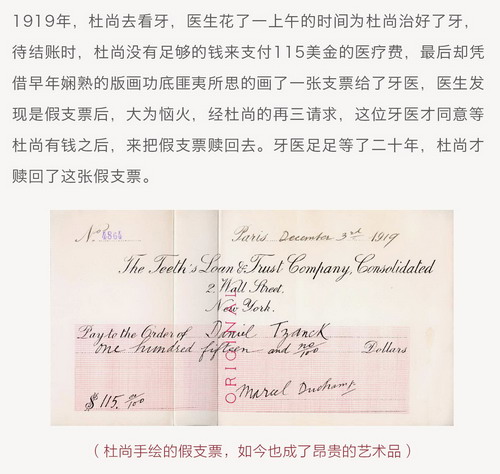 1919年，杜尚去看牙，医生花了一上午的时间为杜尚治好了牙，
待结账时，杜尚没有足够的钱来支付115美金的医疗费，最后却凭
借早年娴熟的版画功底匪夷所思的画了一张支票给了牙医，医生发
现是假支票后，大为恼火，经杜尚的再三请求，这位牙医才同意等
杜尚有钱之后，来把假支票赎回去。牙医足足等了二十年，杜尚才
赎回了这张假支票。
No. 4864
Paris December 3rd 1919
The Teeth's Loan & Trust Company, Consolidated
2 Wall Street.
New York.
Pay to the Order of Daniel Tzanck
one hundred fifteen and no/100 Dollars
ORIGINAL
$115. no/100
Marcel Duchamp
（杜尚手绘的假支票，如今也成了昂贵的艺术品）